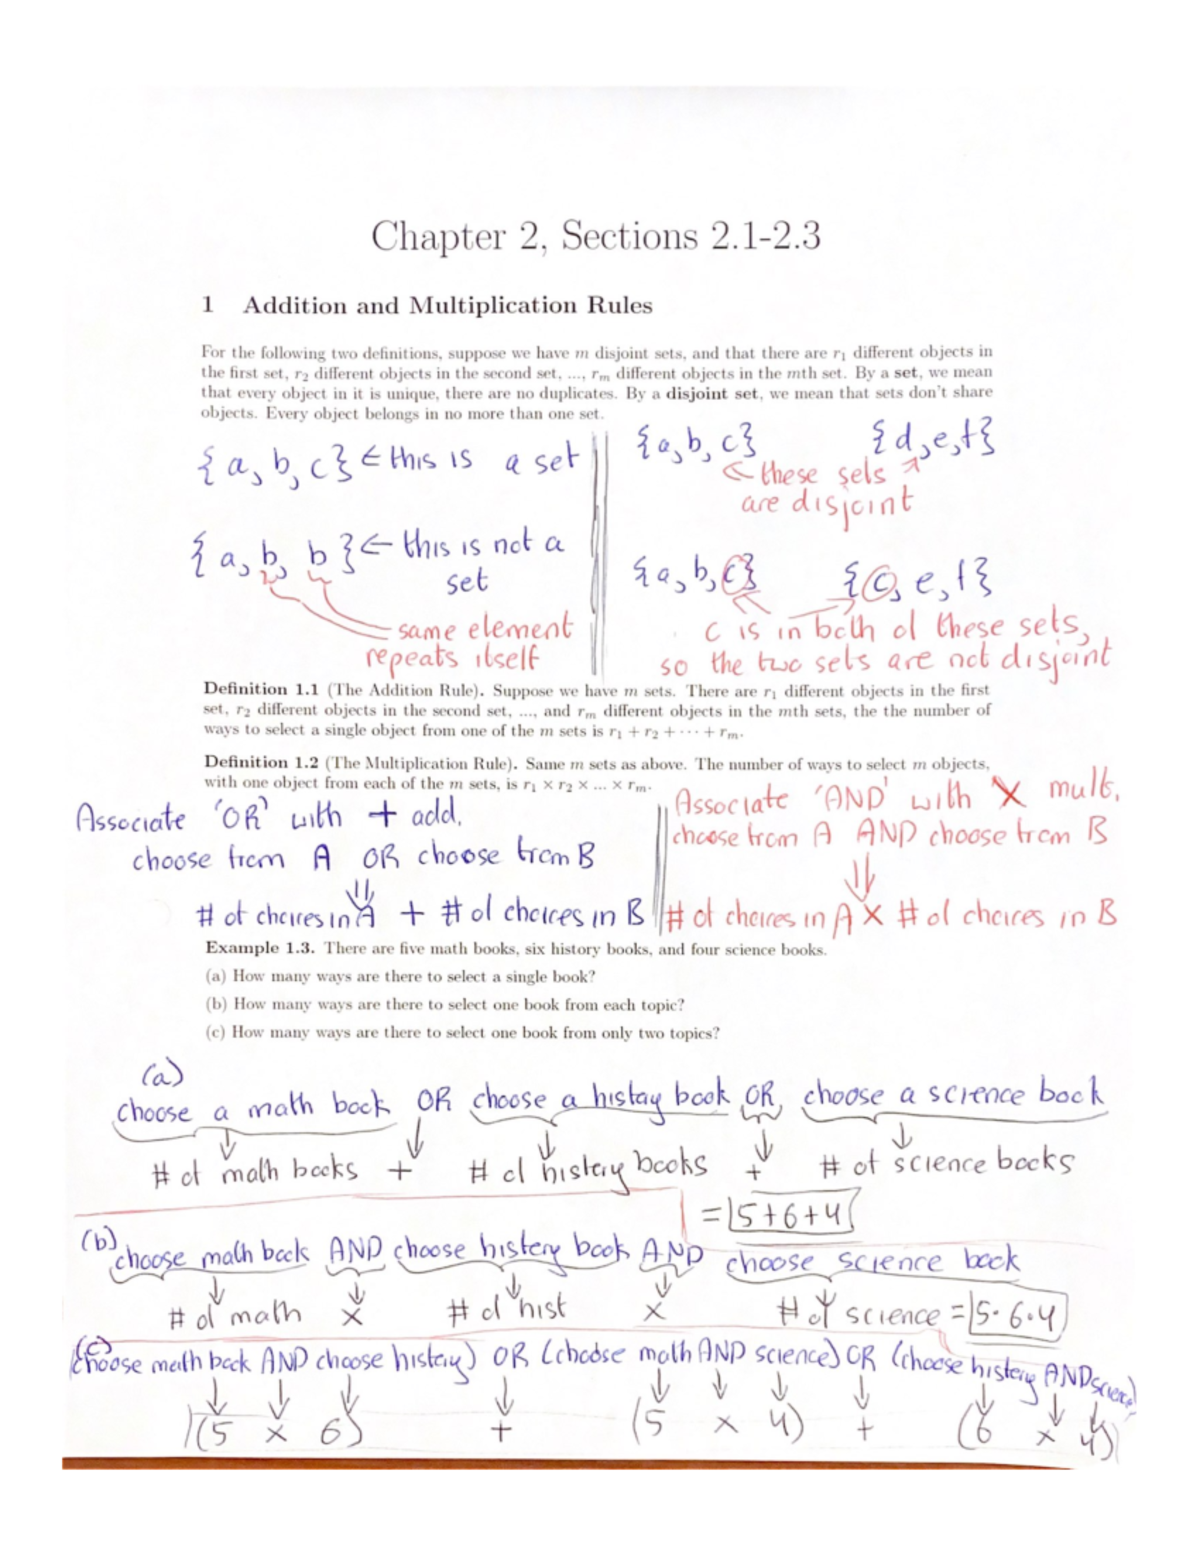 Chapter 2, Sections 2.1-2.3
1 Addition and Multiplication Rules
For the following two definitions, suppose we have m disjoint sets, and that there are r₁ different objects in
the first set, r₂ different objects in the second set, ..., rₘ different objects in the mth set. By a set, we mean
that every object in it is unique, there are no duplicates. By a disjoint set, we mean that sets don't share
objects. Every object belongs in no more than one set.
{a, b, c} ← this is a set
{a, b, b} ← this is not a
set
same element
repeats itself
{a, b, c} {d, e, f}
← these sets
are disjoint
{a, b, c} {c, e, f}
c is in both of these sets,
so the two sets are not disjoint
Definition 1.1 (The Addition Rule). Suppose we have m sets. There are r₁ different objects in the first
set, r₂ different objects in the second set, ..., and rₘ different objects in the mth sets, the the number of
ways to select a single object from one of the m sets is r₁ + r₂ + ··· + rₘ.
Definition 1.2 (The Multiplication Rule). Same m sets as above. The number of ways to select m objects,
with one object from each of the m sets, is r₁ × r₂ × ... × rₘ.
Associate 'OR' with + add.
choose from A OR choose from B
⇓
# of choices in A + # of choices in B
Associate 'AND' with × mult.
choose from A AND choose from B
⇓
# of choices in A × # of choices in B
Example 1.3. There are five math books, six history books, and four science books.
(a) How many ways are there to select a single book?
(b) How many ways are there to select one book from each topic?
(c) How many ways are there to select one book from only two topics?
(a)
choose a math book OR choose a history book OR choose a science book
# of math books + # of history books + # of science books
= 5+6+4
(b) choose math book AND choose history book AND choose science book
# of math × # of hist × # of science = 5·6·4
(c)
(choose math book AND choose history) OR (choose math AND science) OR (choose history AND science)
(5 × 6) + (5 × 4) + (6 × 4)